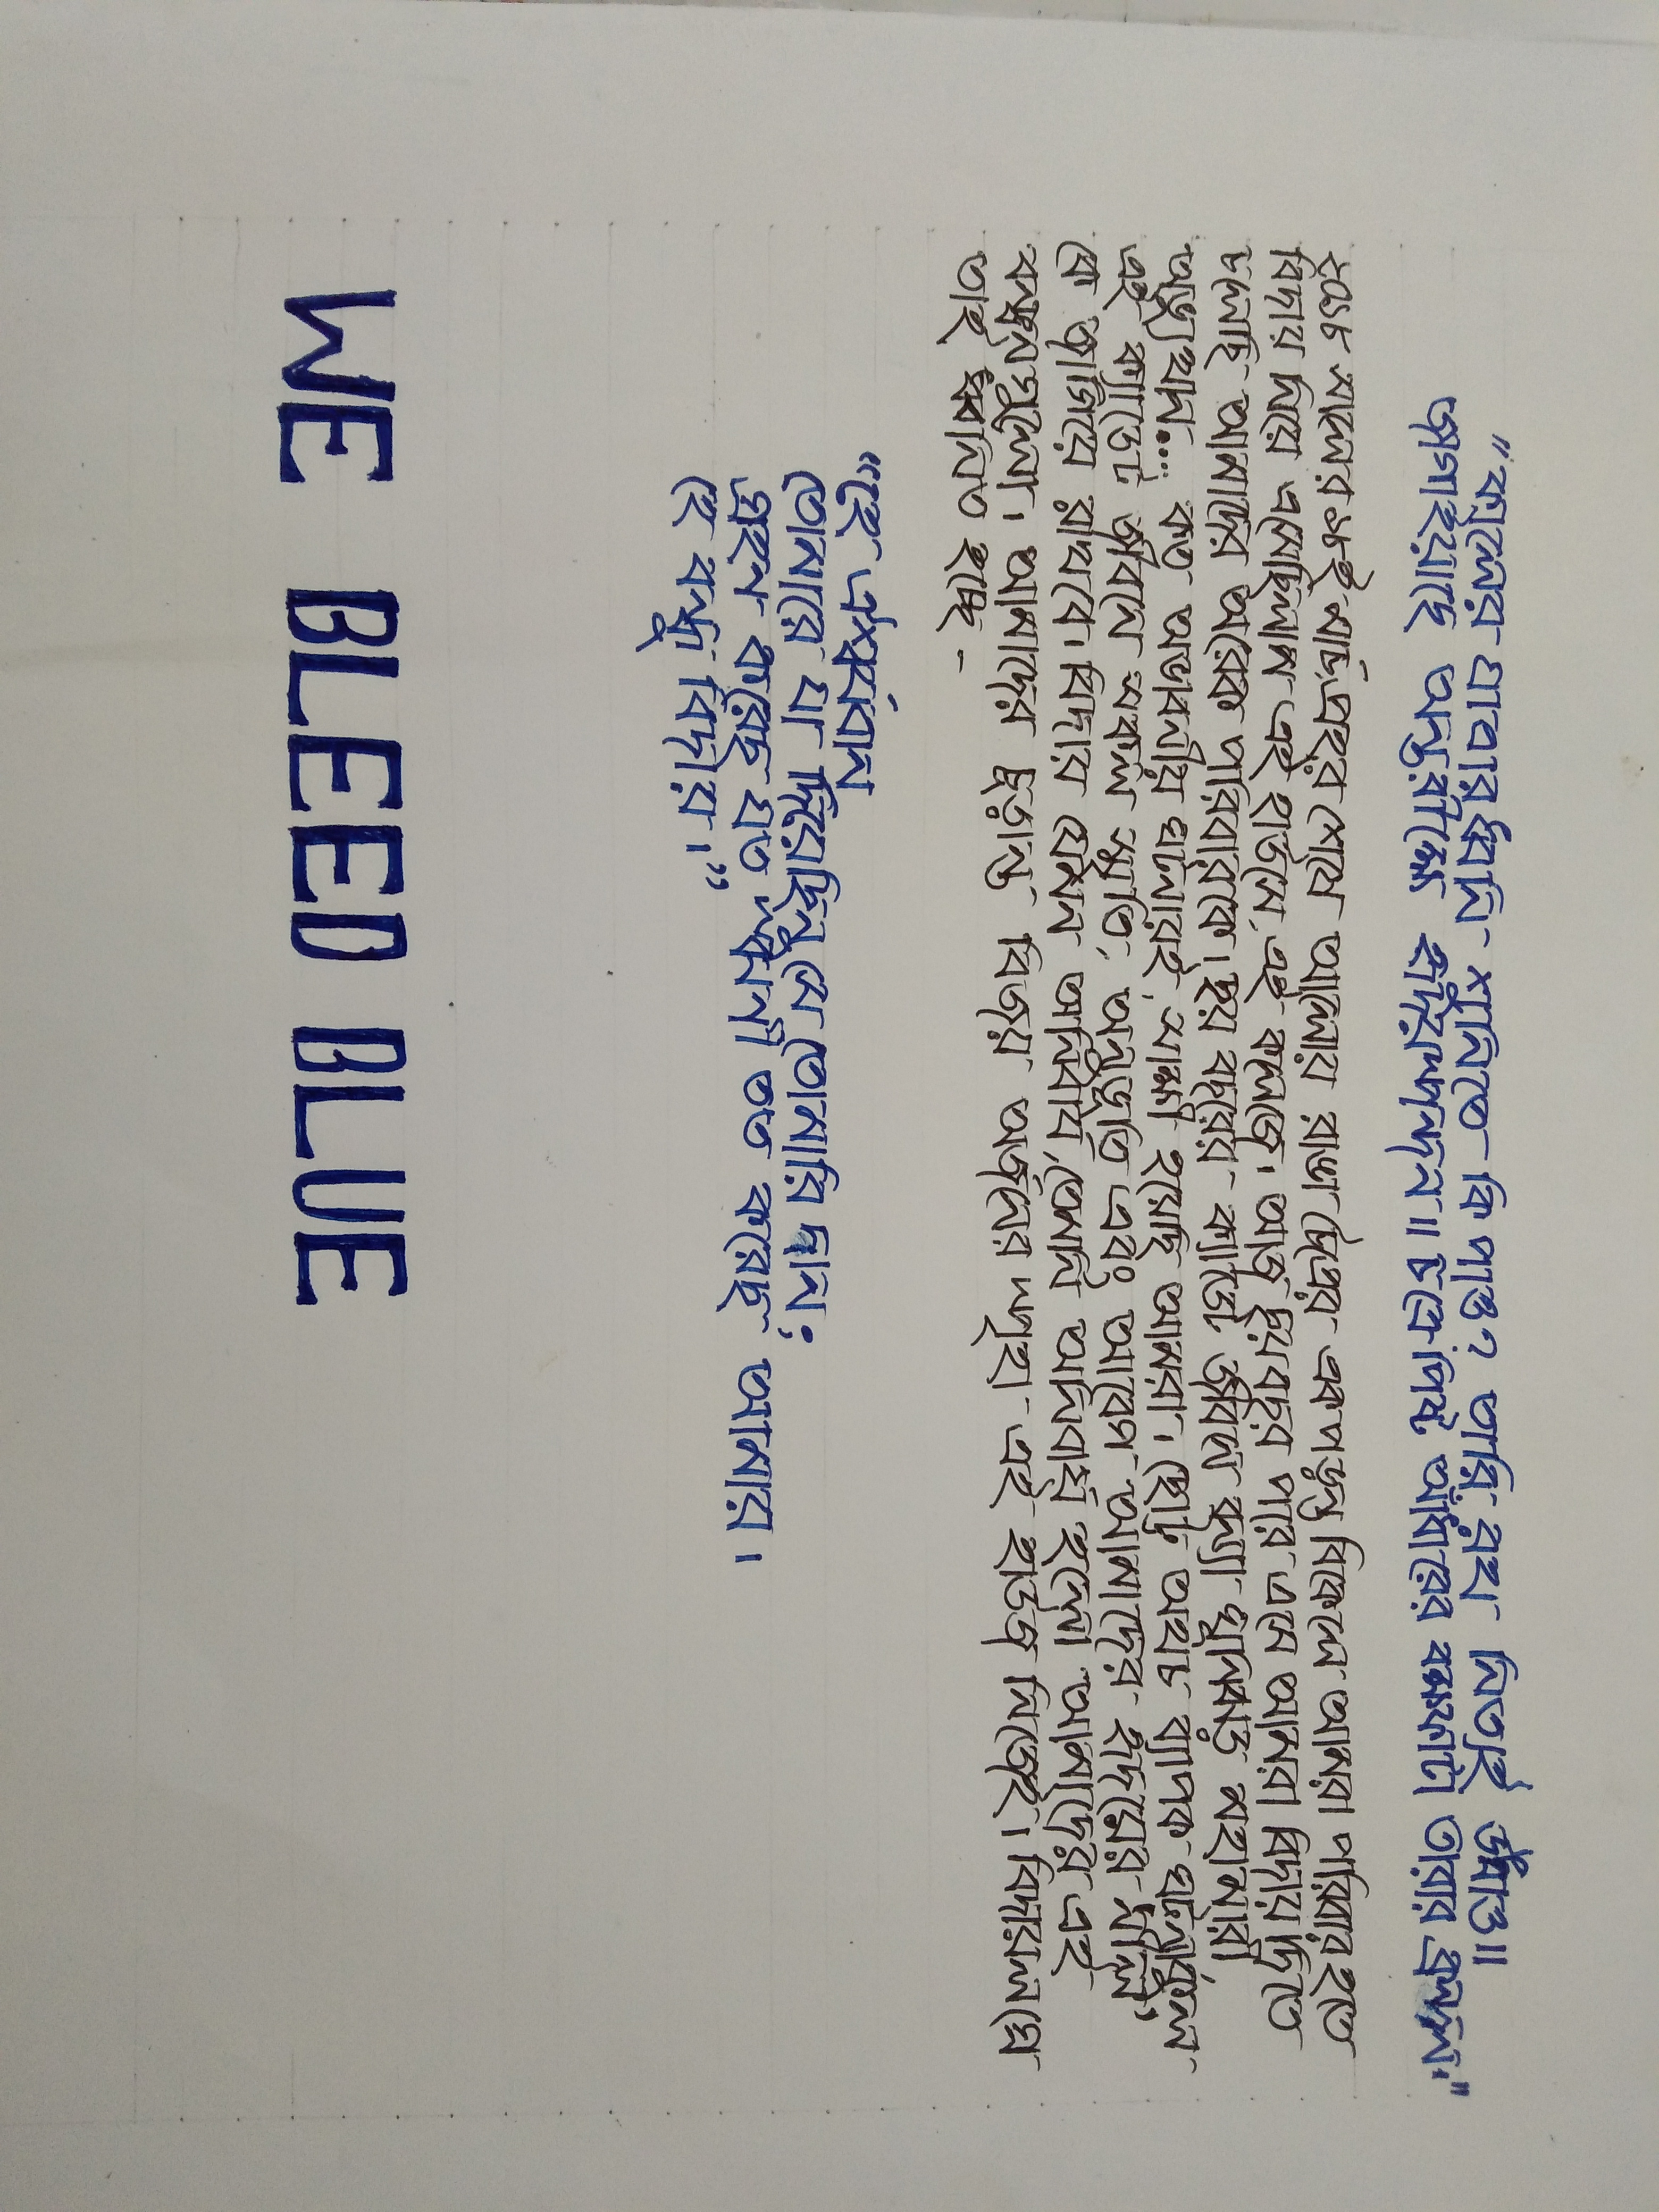 "কালের যাবার ধ্বনি শুনিতে কি পাও? তারি রথ নিত্যই উধাও॥
জাগাইয়াছে অন্তরীক্ষে হৃদয়স্পন্দন॥ চক্রে পিষ্ট আঁধারের বক্ষফাটা তারার ক্রন্দন।"
২০১৮ সালের ১৮ই মার্চ, প্রহর শেষে আলোয় রাঙা চৈত্রের এক পড়ন্ত বিকেলে আমরা পরিবার হতে
বিদায় নিয়ে এসেছিলাম এই হাউসে, এই কলেজে। আজ ছয়বছর পরে এসে আমরা বিদায় দিতে
চলেছি আমাদের অরেক পরিবারকে। ছয় বছরের ক্যাডেট জীবনে বন্যা ঘূর্নিঝড় মহামারী,
অভ্যুত্থান.... কত অভাবনীয় ঘটনারই, সাক্ষী হয়েছি আমরা। ছোট্ট অথচ ব্যাপক ঘটনাকুল
এই ক্যাডেট জীবনে সকল স্মৃতি, অনুভূতি এবং আবেগ আমাদের হৃদয়ের 'নীল'
কে জাগিয়ে রাখবে। বিদায় যেমন অনিবার্য, তেমনি অনিবার্য হলো আমাদের এই
বন্ধনগুলো। আমাদের চূড়ান্ত বিজয় অর্জনের স্পৃহা এই হাউজ নিজেই। বিদায়লগ্নে
তাই ধ্বনিত হচ্ছে -
"হে ঐশ্বর্যবান
তোমারে যা দিয়েছিনু সে তোমারি দান;
গ্রহন করেছ যত ঋনী তত করেছ আমায়।
হে বন্ধু বিদায়।"
WE BLEED BLUE